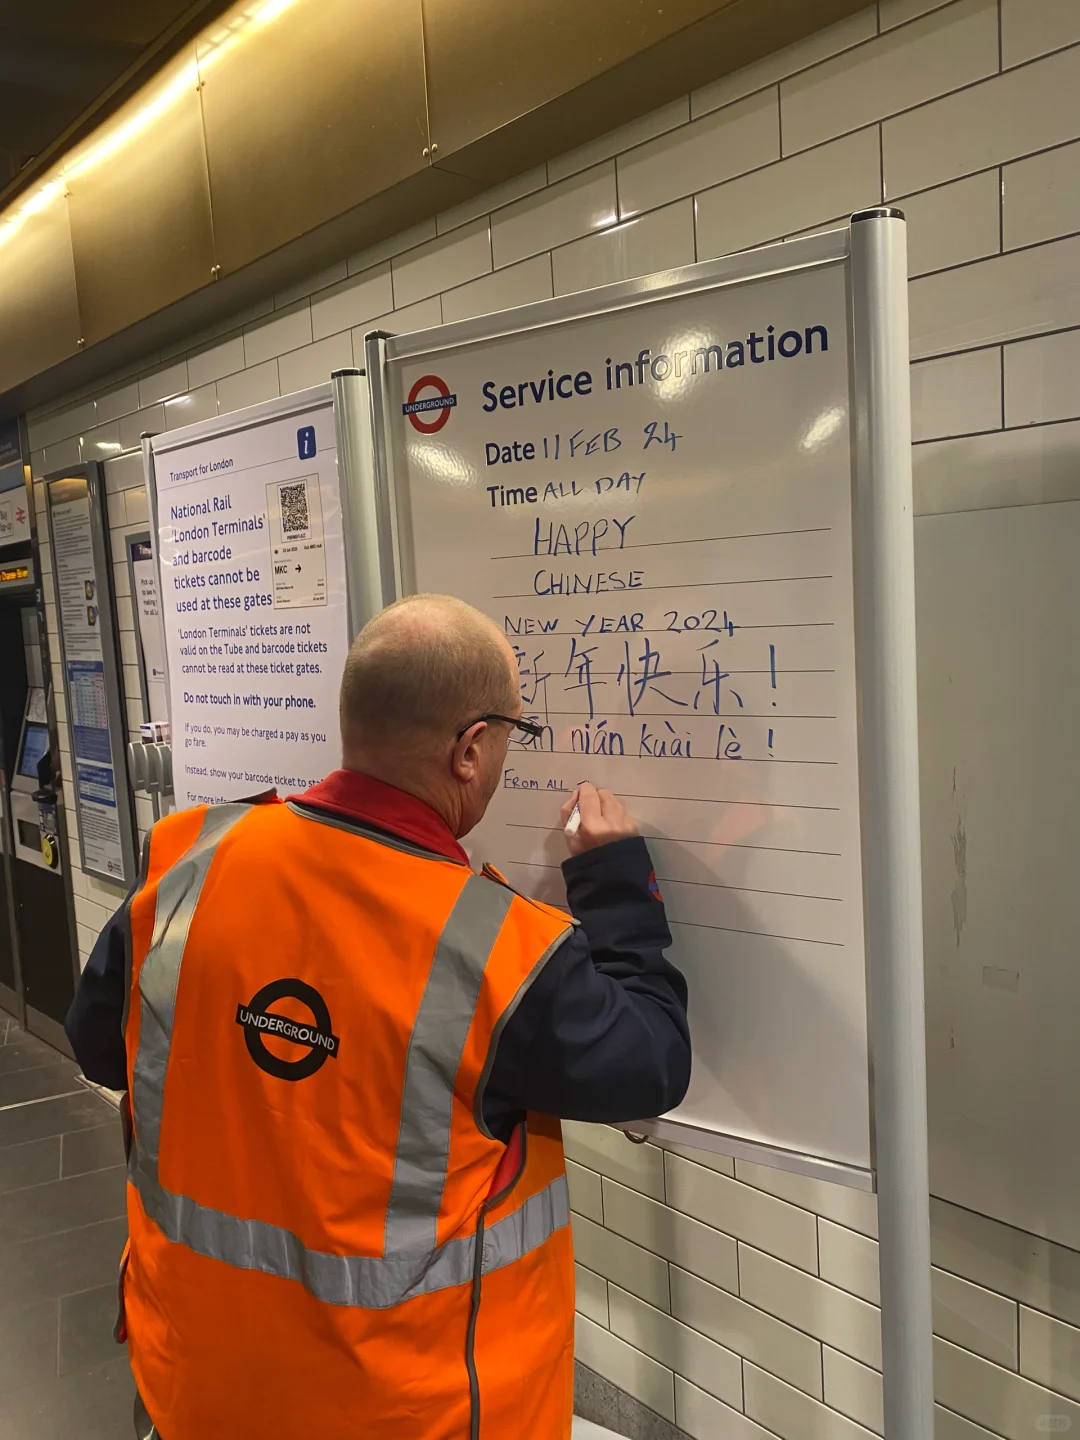 Transport for London
i
National Rail
'London Terminals'
and barcode
tickets cannot be
used at these gates
MKC →
'London Terminals' tickets are not
valid on the Tube and barcode tickets
cannot be read at these ticket gates.
Do not touch in with your phone.
If you do, you may be charged a pay as you
go fare.
Instead, show your barcode ticket to
For more
UNDERGROUND
Service information
Date 11 FEB 24
Time ALL DAY
HAPPY
CHINESE
NEW YEAR 2024
新年快乐!
nián kuài lè !
FROM ALL
UNDERGROUND